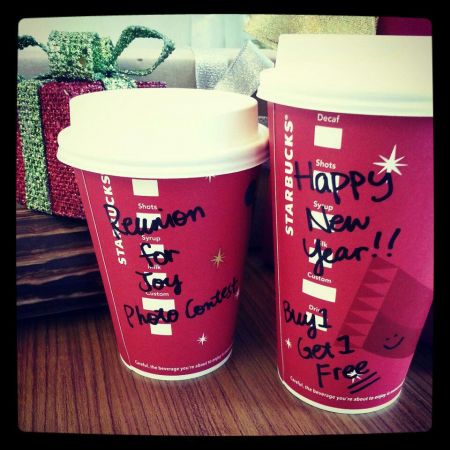 STARBUCKS®
Shots
Syrup
Milk
Custom
Reunion
for
Joy
Photo Contest
Careful, the beverage you're about to enjoy
STARBUCKS®
Decaf
Shots
Syrup
Milk
Custom
Happy
New
Year!!
Buy 1
Get 1
Free
Careful, the beverage you're about to enjoy